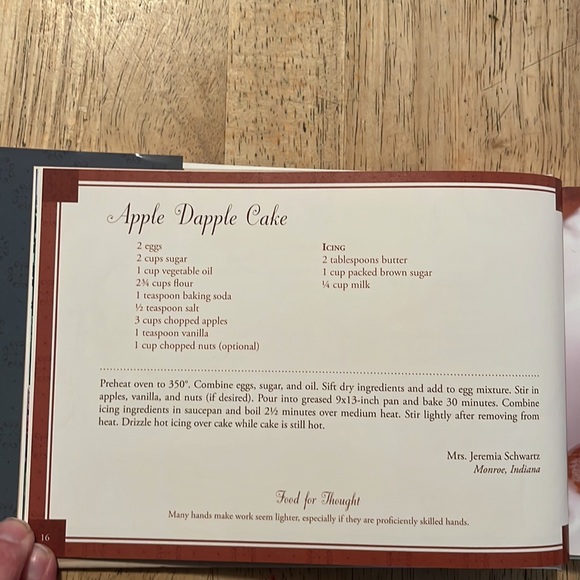 Apple Dapple Cake
2 eggs
2 cups sugar
1 cup vegetable oil
2¾ cups flour
1 teaspoon baking soda
½ teaspoon salt
3 cups chopped apples
1 teaspoon vanilla
1 cup chopped nuts (optional)
ICING
2 tablespoons butter
1 cup packed brown sugar
¼ cup milk
Preheat oven to 350°. Combine eggs, sugar, and oil. Sift dry ingredients and add to egg mixture. Stir in
apples, vanilla, and nuts (if desired). Pour into greased 9x13-inch pan and bake 30 minutes. Combine
icing ingredients in saucepan and boil 2½ minutes over medium heat. Stir lightly after removing from
heat. Drizzle hot icing over cake while cake is still hot.
Mrs. Jeremia Schwartz
Monroe, Indiana
Food for Thought
Many hands make work seem lighter, especially if they are proficiently skilled hands.
16